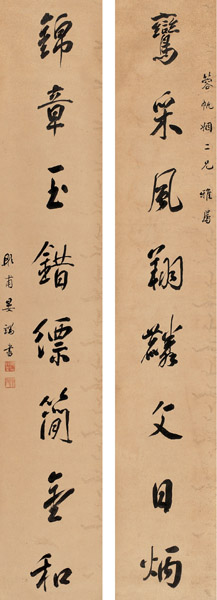 蓉帆姻二兄雅屬
鸞采風翔麟文日炳
錦章玉錯縹簡金和
甫書